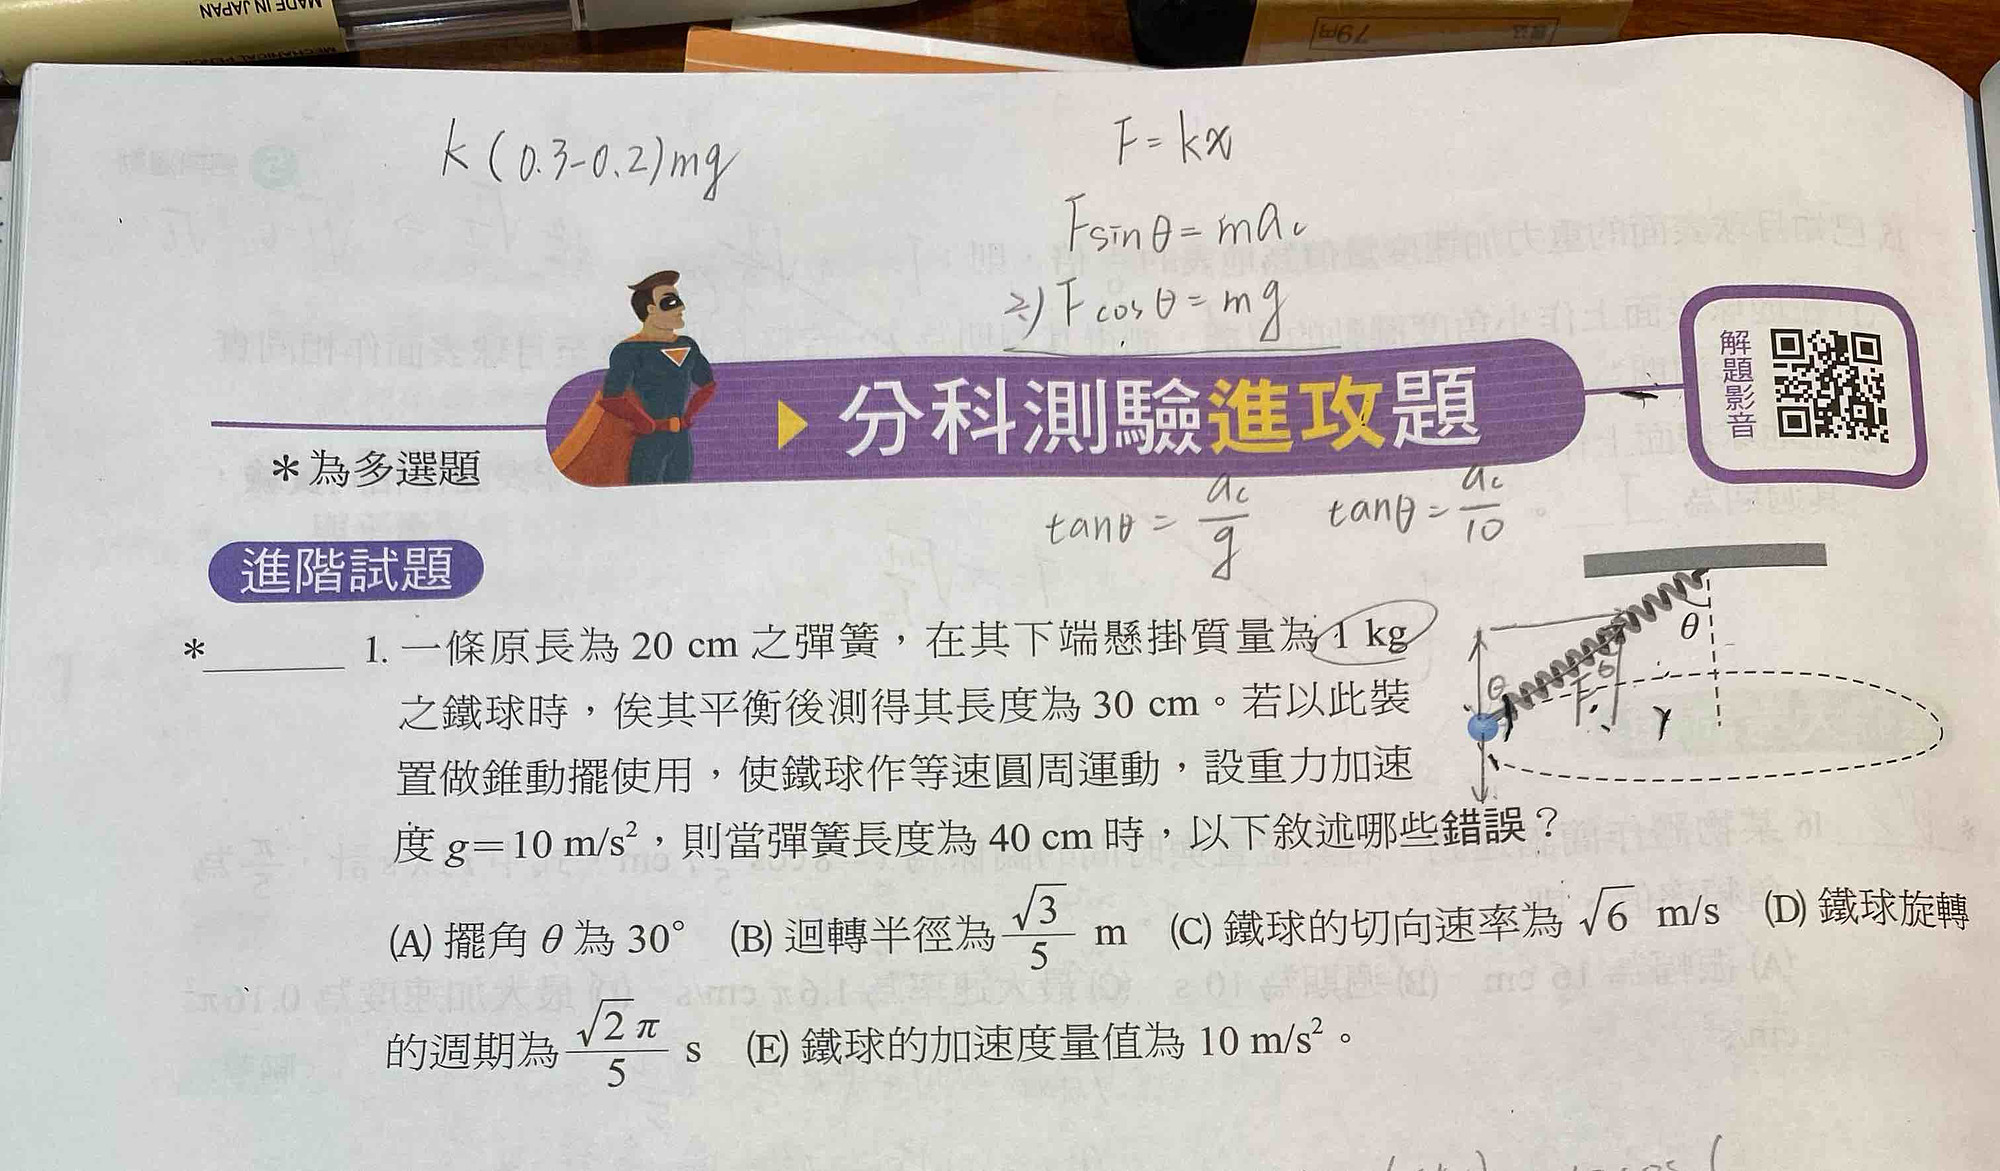 MADE IN JAPAN
79円
k(0.3-0.2)mg
F=kx
Fsinθ=mac
÷) Fcosθ=mg
解題影音
▶分科測驗進攻題
*為多選題
tanθ=ac/g tanθ=ac/10
進階試題
θ
θ
θ
F
r
*______ 1. 一條原長為 20 cm 之彈簧，在其下端懸掛質量為 1 kg
之鐵球時，俟其平衡後測得其長度為 30 cm。若以此裝
置做錐動擺使用，使鐵球作等速圓周運動，設重力加速
度 g=10 m/s²，則當彈簧長度為 40 cm 時，以下敘述哪些錯誤？
(A) 擺角 θ 為 30° (B) 迴轉半徑為 √3/5 m (C) 鐵球的切向速率為 √6 m/s (D) 鐵球旋轉
的週期為 √2π/5 s (E) 鐵球的加速度量值為 10 m/s²。